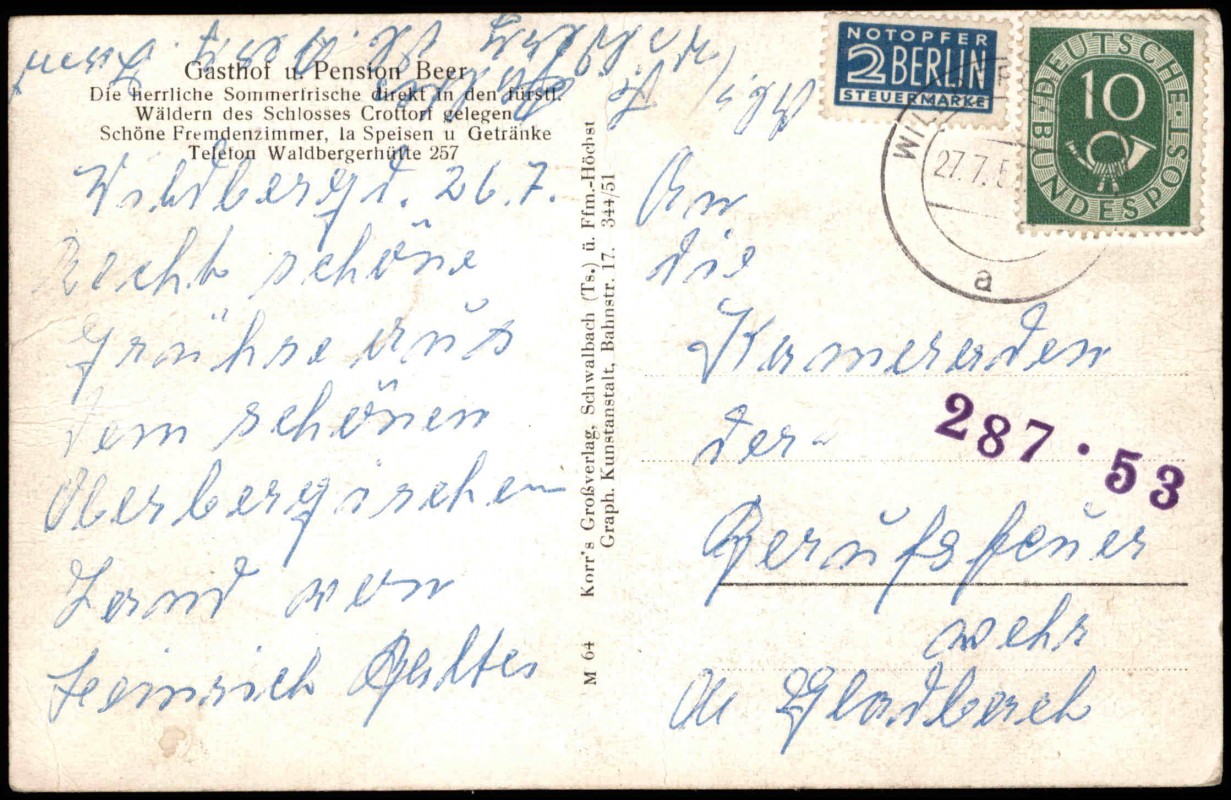 Gasthof u. Pension Beer
Die herrliche Sommerfrische direkt in den fürstl.
Wäldern des Schlosses Crottorf gelegen
Schöne Fremdenzimmer, la Speisen u Getränke
Telefon Waldbergerhütte 257
Wildbergh. 26.7.
Recht schöne
Grühse aus
dem schönen
Oberbergischen
Land von
Heinrich
M 64 Korr's Großverlag, Schwalbach (Ts.) ü. Ffm.-Höchst
Graph. Kunstanstalt, Bahnstr. 17. 344/51
NOTOPFER
2 BERLIN
STEUERMARKE
DEUTSCHE BUNDESPOST
10
27.7.5
a
An
die
Kameraden
der
287.53
Berufsfeuer
wehr
M Gladbach